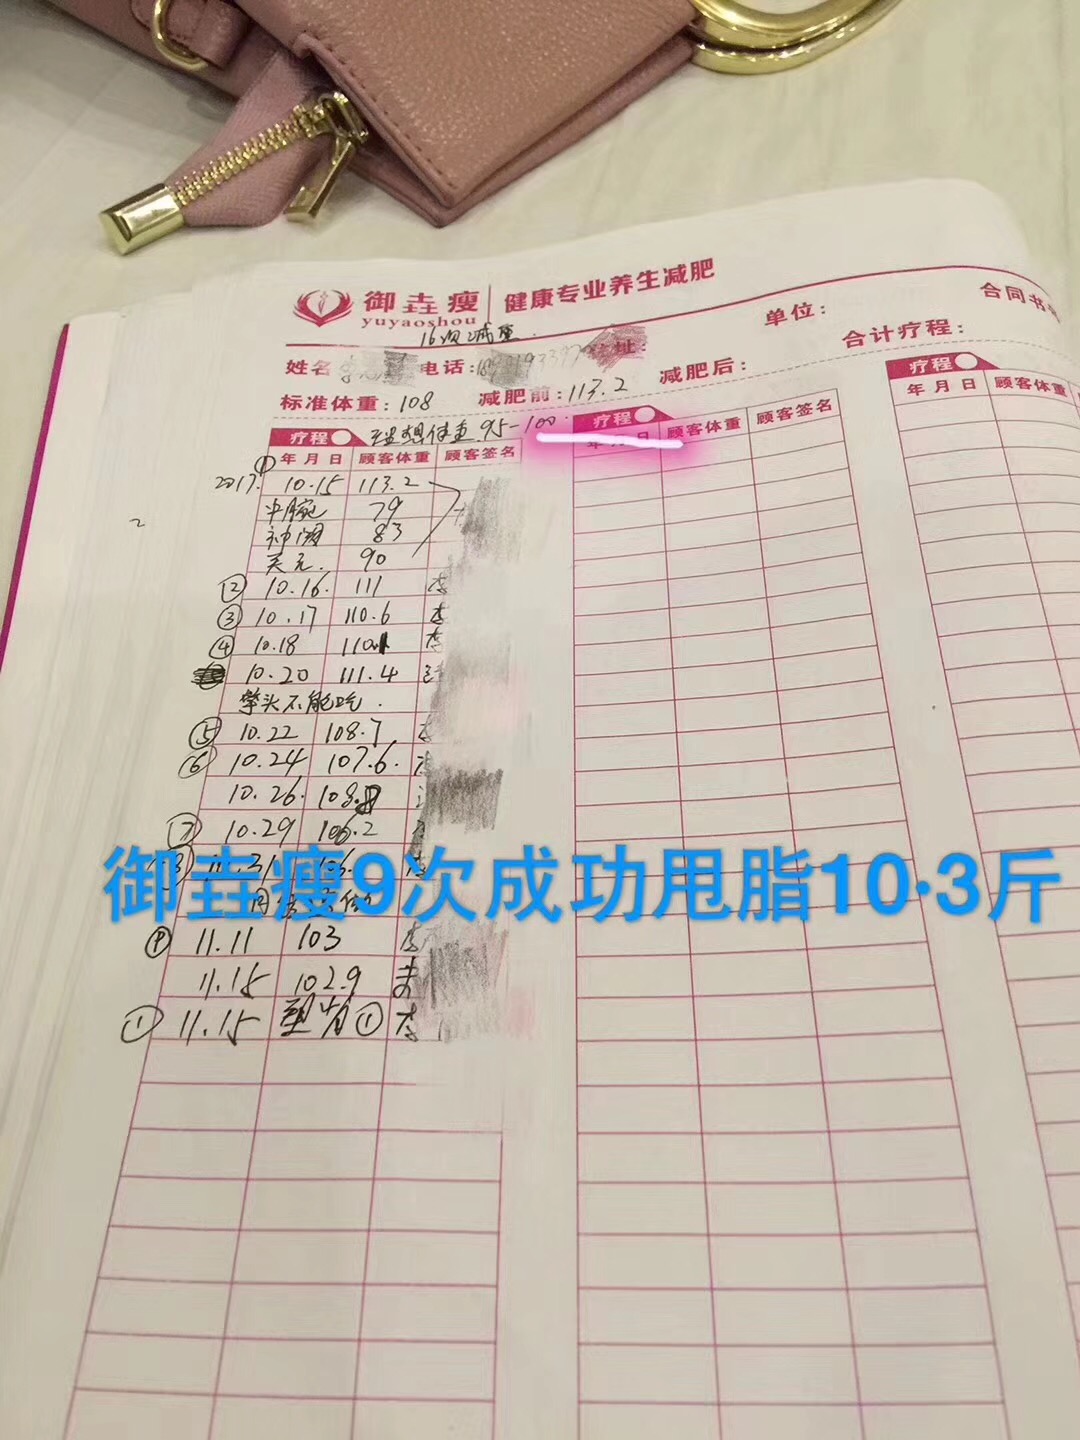 御垚瘦 健康专业养生减肥
yuyaoshou
16次减重
单位：
合同书
姓名 电话： 址：
合计疗程：
标准体重：108 减肥前：113.2 减肥后：
疗程 理想体重 95-100
疗程
疗程
年 月 日 顾客体重 顾客签名
年 月 日 顾客体重 顾客签名
年 月 日 顾客体重
① 2017. 10.15 113.2
中脘 79
神阙 83
关元. 90
② 10.16. 111 李
③ 10.17 110.6 李
④ 10.18 110.1 李
10.20 111.4
拳头不能吃.
⑤ 10.22 108.7
⑥ 10.24 107.6.
10.26. 108.
⑦ 10.29 106.2
御垚瘦9次成功甩脂10·3斤
11.11 103 李
11.15 102.9
① 11.15 塑 ① 李